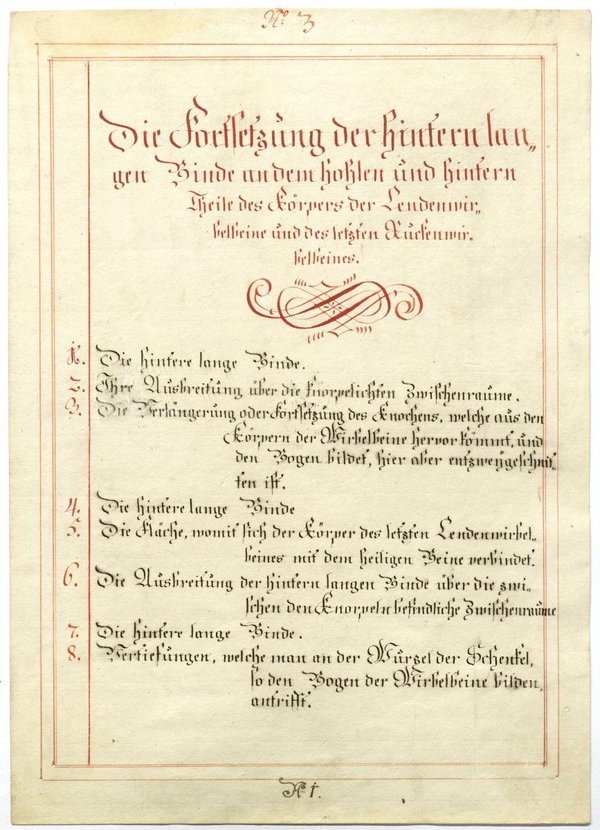 No. 3
Die Fortsetzung der hintern lan„
gen Binde an dem hohlen und hintern
Theile des Körpers der Lendenwir„
belbeine und des letzten Ruckenwir.
belbeines.
1. Die hintere lange Binde.
2. Ihre Ausbreitung über die knorpelichten Zwischenraume.
3. Die Verlängerung oder Fortsetzung des Knochens, welche aus den
Körpern der Wirbelbeine hervor kömmt, und
den Bogen bildet, hier aber entzweygeschnit„
ten ist.
4. Die hintere lange Binde
5. Die Fläche, womit sich der Körper des letzten Lendenwirbel„
beines mit dem heiligen Beine verbindet.
6. Die Ausbreitung der hintern langen Binde über die zwi„
schen den Knorpeln befindliche Zwischenraume
7. Die hintere lange Binde.
8. Vertiefungen, welche man an der Wurzel der Schenkel,
so den Bogen der Wirbelbeine bilden,
antrifft.
No. 1.